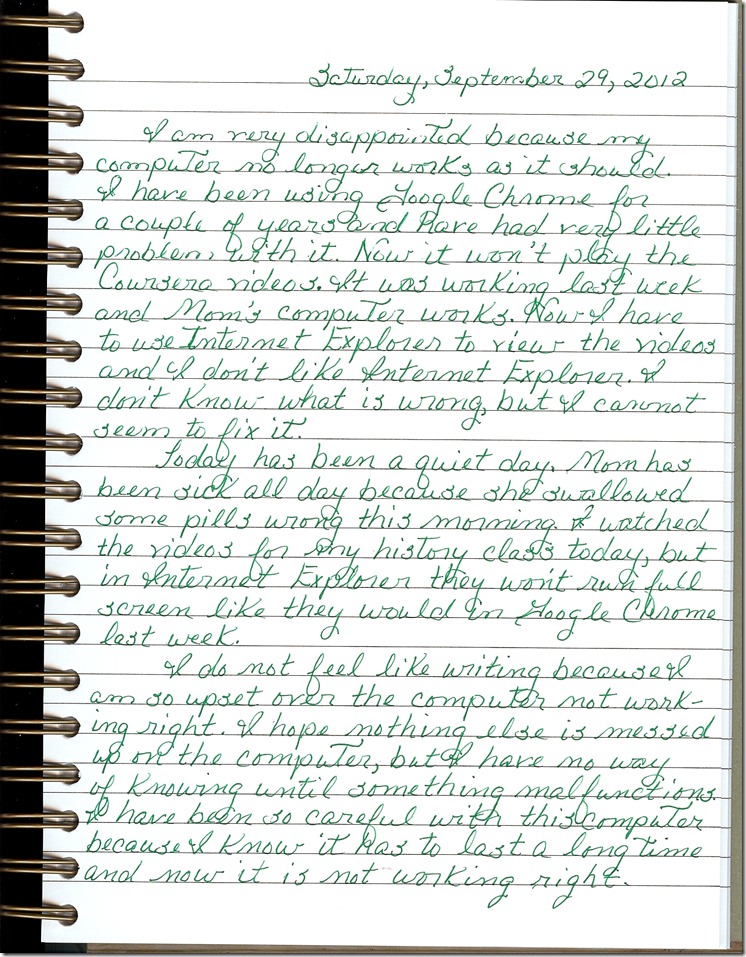 Saturday, September 29, 2012
I am very disappointed because my
computer no longer works as it should.
I have been using Google Chrome for
a couple of years and have had very little
problem with it. Now it won't play the
Coursera videos. It was working last week
and Mom's computer works. Now I have
to use Internet Explorer to view the videos
and I don't like Internet Explorer. I
don't know what is wrong, but I cannot
seem to fix it.
Today has been a quiet day. Mom has
been sick all day because she swallowed
some pills wrong this morning. I watched
the videos for my history class today, but
in Internet Explorer they won't run full
screen like they would in Google Chrome
last week.
I do not feel like writing because I
am so upset over the computer not work-
ing right. I hope nothing else is messed
up on the computer, but I have no way
of knowing until something malfunctions.
I have been so careful with this computer
because I know it has to last a long time
and now it is not working right.